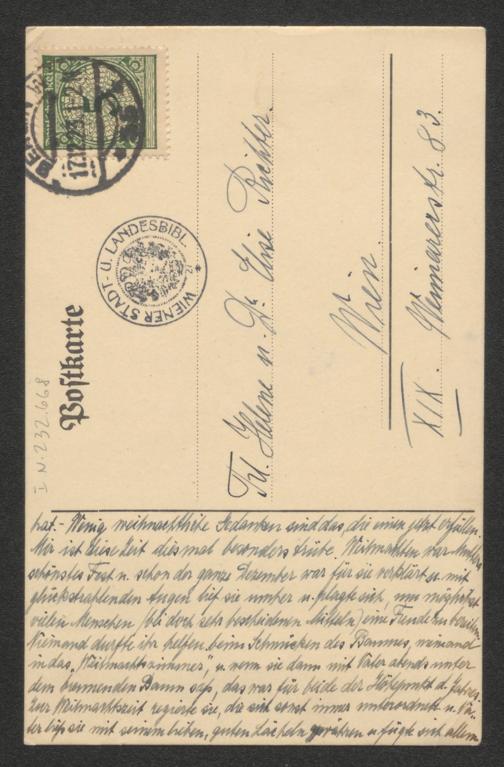 BERLIN
17.12.23
WIENER STADT- U. LANDESBIBL.
Postkarte
I N. 232.668
Frl. Helene u. Dr. Elise Richter.
Wien
XIX. Weimarerstr. 83.
hat. - Wenig weihnachtliche Gedanken sind das, die einen jetzt erfüllen.
Mir ist diese Zeit diesmal besonders trübe. Weihnachten war Mutters
schönstes Fest u. schon der ganze Dezember war für sie verklärt u. mit
glückstrahlenden Augen lief sie umher u. plagte sich, um möglichst
vielen Menschen (bei doch sehr bescheidenen Mitteln) eine Freude zu bereiten.
Niemand durfte ihr helfen beim Schmücken des Baumes, niemand
in das "Weihnachtszimmer", u. wenn sie dann mit Vater abends unter
dem brennenden Baum saß, das war für beide der Höhepunkt d. Jahres.
Zur Weihnachtszeit regierte sie, die sich sonst immer unterordnete u. Va-
ter ließ sie mit seinem lieben, guten Lächeln gewähren u. fügte sich allem